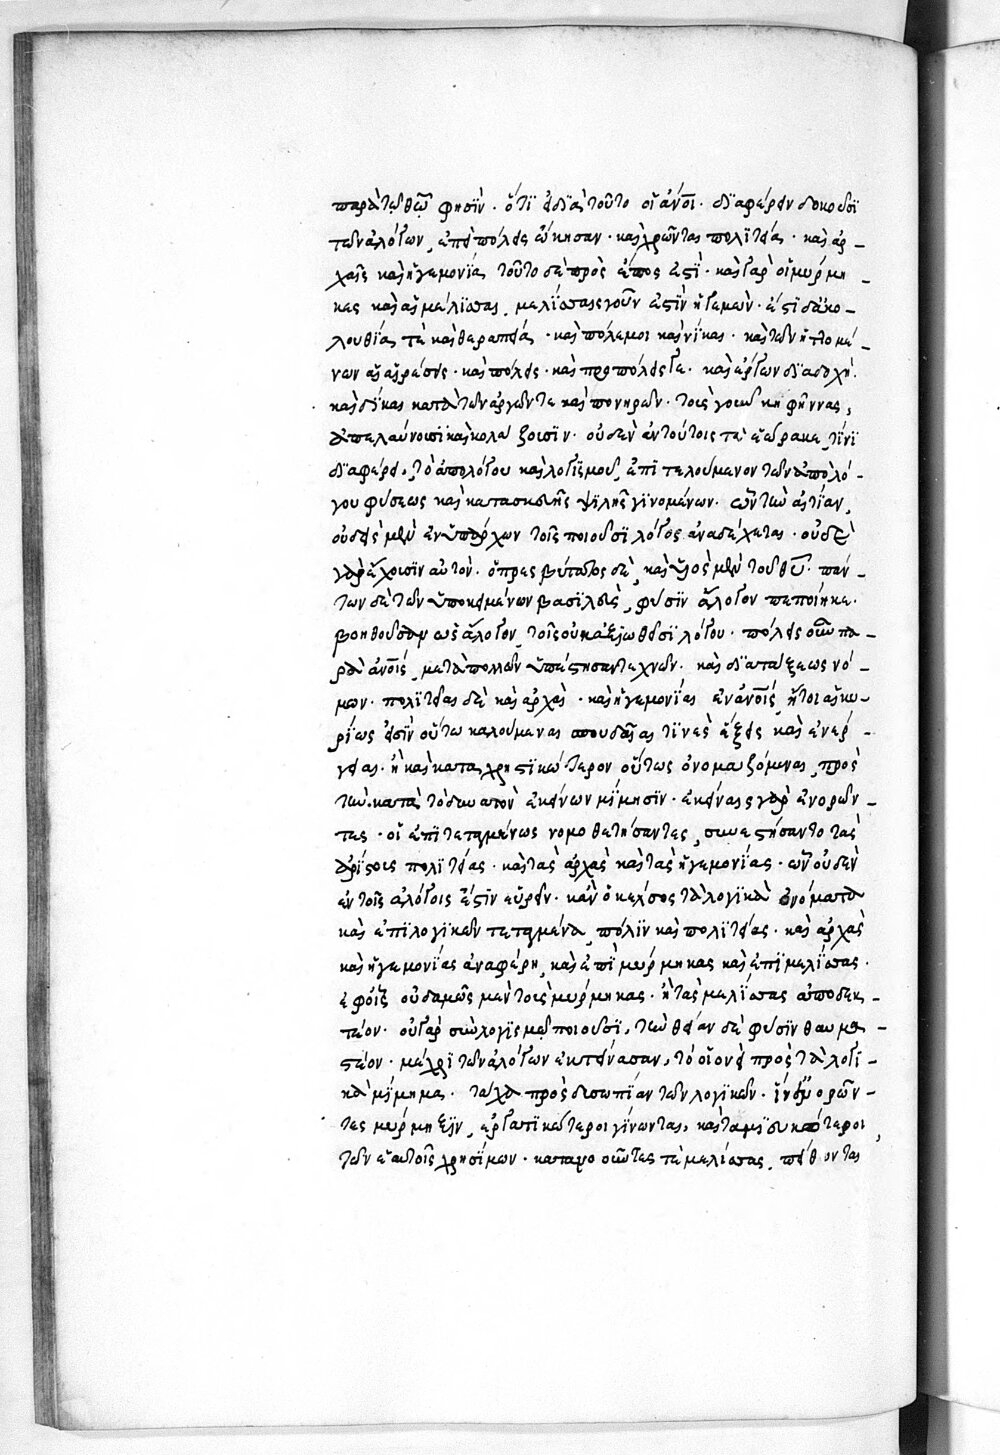 παρὰ τῶ θῶ φησϊν · ὅτϊ εἰ διὰ τοῦτο οἱ ἄνοι · διαφέρειν δοκοῦσϊ
τῶν ἀλόγων, ἐπεὶ πόλεις ὤκησαν · καὶ χρῶνται πολϊτείᾳ · καὶ ἀρ-
χαῖς καὶ ἡγεμονίαις τοῦτο δὲ πρὸς ἔπος ἐστϊ · καὶ γὰρ οἱ μύρμη
κες καὶ αἱ μέλϊσσαι, μελίσσαις γοῦν ἐστϊν ἡγεμών · ἔστι δὲ ἀκο-
λουθία τὲ καὶ θεραπεία · καὶ πόλεμοι καὶ νίκαι · καὶ τῶν ἡττωμέ-
νων αἱ αἱρέσεις · καὶ πόλεις · καὶ προπόλεις γε · καὶ ἔργων διαδοχή ·
καὶ δίκαι κατὰ τῶν ἀργῶν τε καὶ πονηρῶν · τοὺς γοῦν κηφῆνας,
ἀπελαύνουσι καὶ κολάζουσϊν · οὐδὲν ἐν τούτοις τε ἑώρακε, τίνϊ
διαφέρει, τὸ ἀπὸ λόγου καὶ λογϊσμοῦ ἐπϊτελούμενον τῶν ἀπὸ ἀλό-
γου φύσεως καὶ κατασκευῆς ψϊλῆς γϊνομένων · ὧν τὴν αἰτίαν,
οὐδεὶς μὲν ἐνϋπάρχων τοῖς ποιοῦσϊ λόγος ἀναδέχεται · οὐδὲ
γὰρ ἔχουσϊν αὐτόν · ὁ πρεσβύτατος δὲ, καὶ ϋἱὸς μὲν τοῦ θῦ · πάν
των δὲ τῶν ϋποκειμένων βασϊλεὺς, φύσϊν ἄλογον πεποίηκε ·
βοηθοῦσαν ὡς ἄλογον, τοῖς οὐκ ἀξϊωθεῖσϊ λόγου · πόλεις οὖν πα-
ρὰ ἀνοις, μετὰ πολλῶν ϋπέστησαν τεχνῶν · καὶ διατάξεως νό-
μων · πολϊτεῖαι δὲ καὶ ἀρχαὶ · καὶ ἡγεμονίαι ἐν ἀνοις, ἤτοι αἱ κυ-
ρίως εἰσϊν οὕτω καλούμεναι σπουδαῖαι τϊνὲς ἕξεις καὶ ἐνέρ-
γειαι · ἢ καὶ καταχρηστϊκώτερον οὕτως ὀνομαζόμεναι, πρὸς
τὴν κατὰ τὸ δυνατὸν ἐκείνων μίμησϊν · ἐκείναις γὰρ ἐνορῶν-
τες · οἱ ἐπϊτετευγμένως νομοθετήσαντες, συνεστήσαντο τὰς
ἀρίστους πολϊτείας · καὶ τὰς ἀρχὰς καὶ τὰς ἡγεμονίας · ὧν οὐδὲν
ἐν τοῖς ἀλόγοις ἔστϊν εὑρεῖν · κἂν ὁ κέλσος τὰ λογϊκὰ ὀνόματα
καὶ ἐπὶ λογϊκῶν τεταγμένα, πόλϊν καὶ πολϊτείας · καὶ ἀρχὰς
καὶ ἡγεμονίας ἀναφέρῃ, καὶ ἐπϊ μύρμηκας καὶ ἐπϊ μελίσσας ·
ἐφ' οἷς οὐδαμῶς μὲν τοὺς μύρμηκας · ἢ τὰς μελίσσας ἀποδεκ-
τέον · οὐ γὰρ σὺν λογϊσμῶ ποιοῦσϊ, τὴν θείαν δὲ φύσϊν θαυμα-
στέον · μέχρϊ τῶν ἀλόγων ἐκτείνασαν, τὸ οἱονεὶ πρὸς τὰ λογϊ-
κὰ μίμημα · τάχα πρὸς δυσωπίαν τῶν λογϊκῶν · ἵν' ἐνορῶν-
τες μύρμηξϊν, ἐργατϊκώτεροι γίνωνται, καὶ ταμϊευτικώτεροι,
τῶν ἑαυτοῖς χρησίμων · κατανοοῦντές τε μελίσσας, πείθωνται